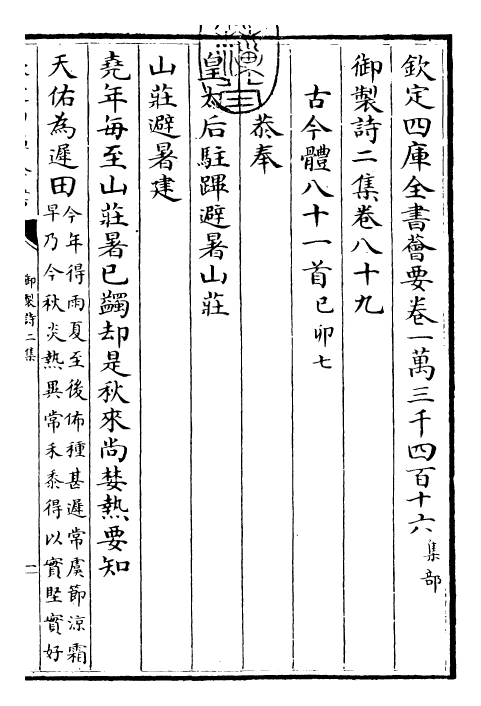 欽定四庫全書薈要卷一萬三千四百十六集部
御製詩二集卷八十九
古今體八十一首己卯七
恭奉
皇太后駐蹕避暑山莊
山莊避暑建
堯年每至山莊暑已蠲却是秋來尚婪熱要知
天佑為遲田今年得雨夏至後佈種甚遲常虞節涼霜
早乃今秋炎熱異常禾黍得以實堅實好
御製詩二集
一